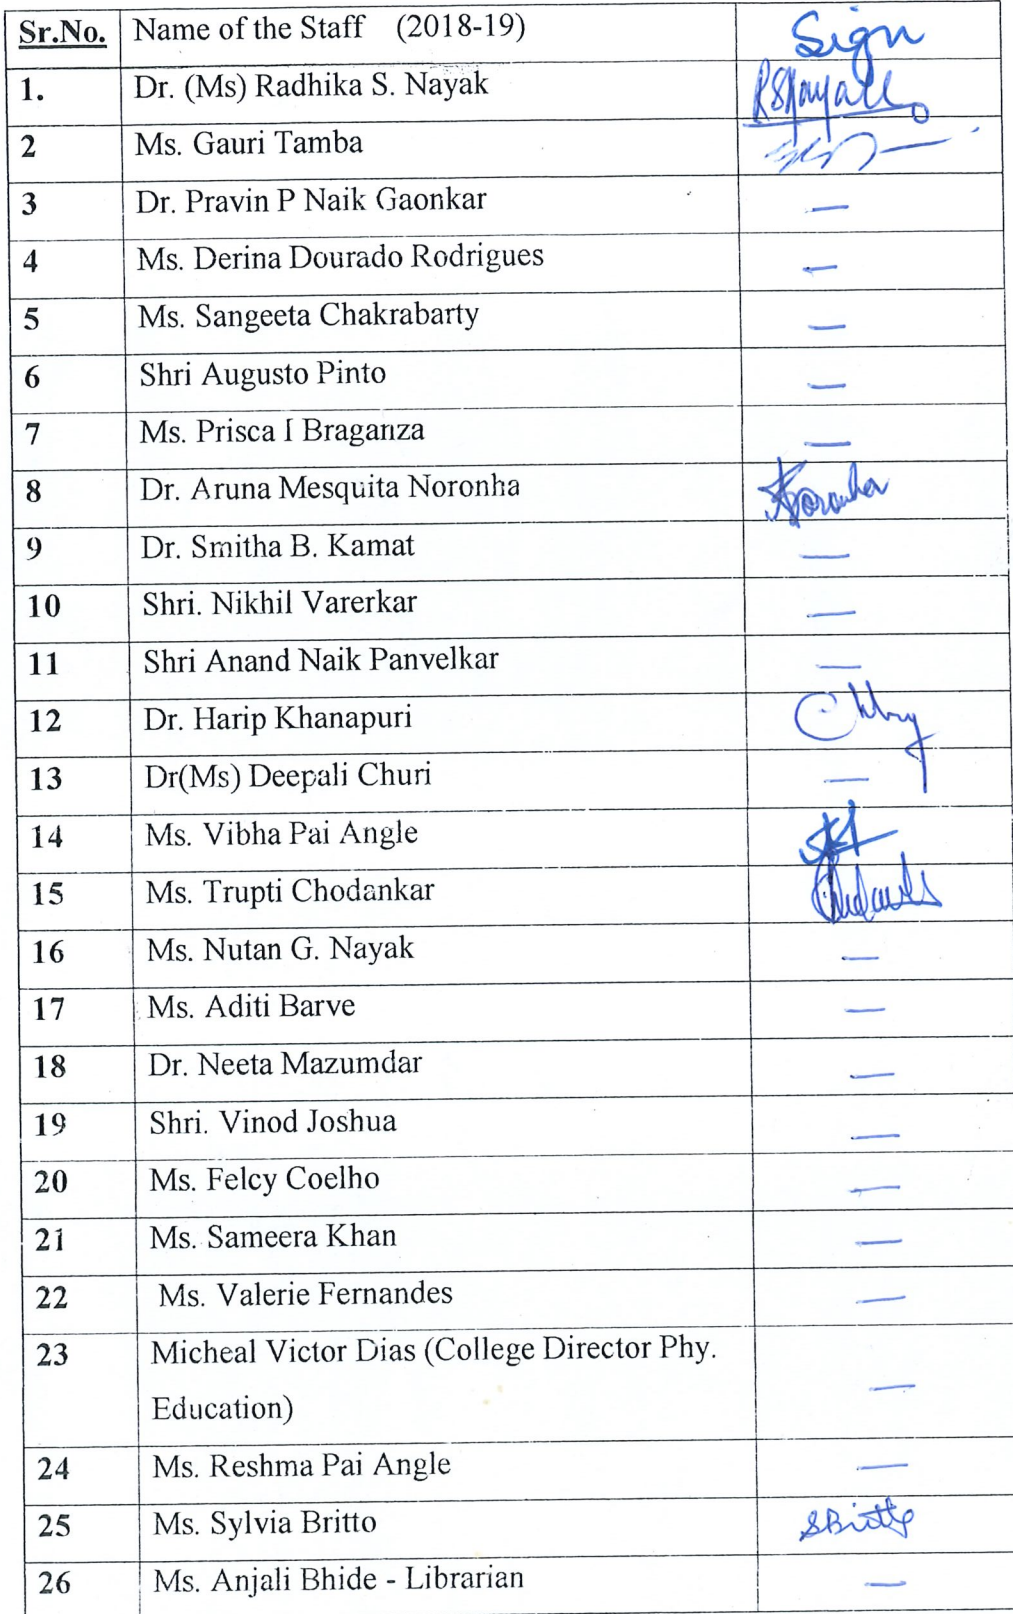 Sr.No. Name of the Staff (2018-19) Sign
1. Dr. (Ms) Radhika S. Nayak RSNayak
2 Ms. Gauri Tamba
3 Dr. Pravin P Naik Gaonkar —
4 Ms. Derina Dourado Rodrigues —
5 Ms. Sangeeta Chakrabarty —
6 Shri Augusto Pinto —
7 Ms. Prisca I Braganza —
8 Dr. Aruna Mesquita Noronha Noronha
9 Dr. Smitha B. Kamat —
10 Shri. Nikhil Varerkar —
11 Shri Anand Naik Panvelkar —
12 Dr. Harip Khanapuri
13 Dr(Ms) Deepali Churi —
14 Ms. Vibha Pai Angle
15 Ms. Trupti Chodankar
16 Ms. Nutan G. Nayak —
17 Ms. Aditi Barve —
18 Dr. Neeta Mazumdar —
19 Shri. Vinod Joshua —
20 Ms. Felcy Coelho —
21 Ms. Sameera Khan —
22 Ms. Valerie Fernandes —
23 Micheal Victor Dias (College Director Phy.
Education) —
24 Ms. Reshma Pai Angle —
25 Ms. Sylvia Britto SBritto
26 Ms. Anjali Bhide - Librarian —